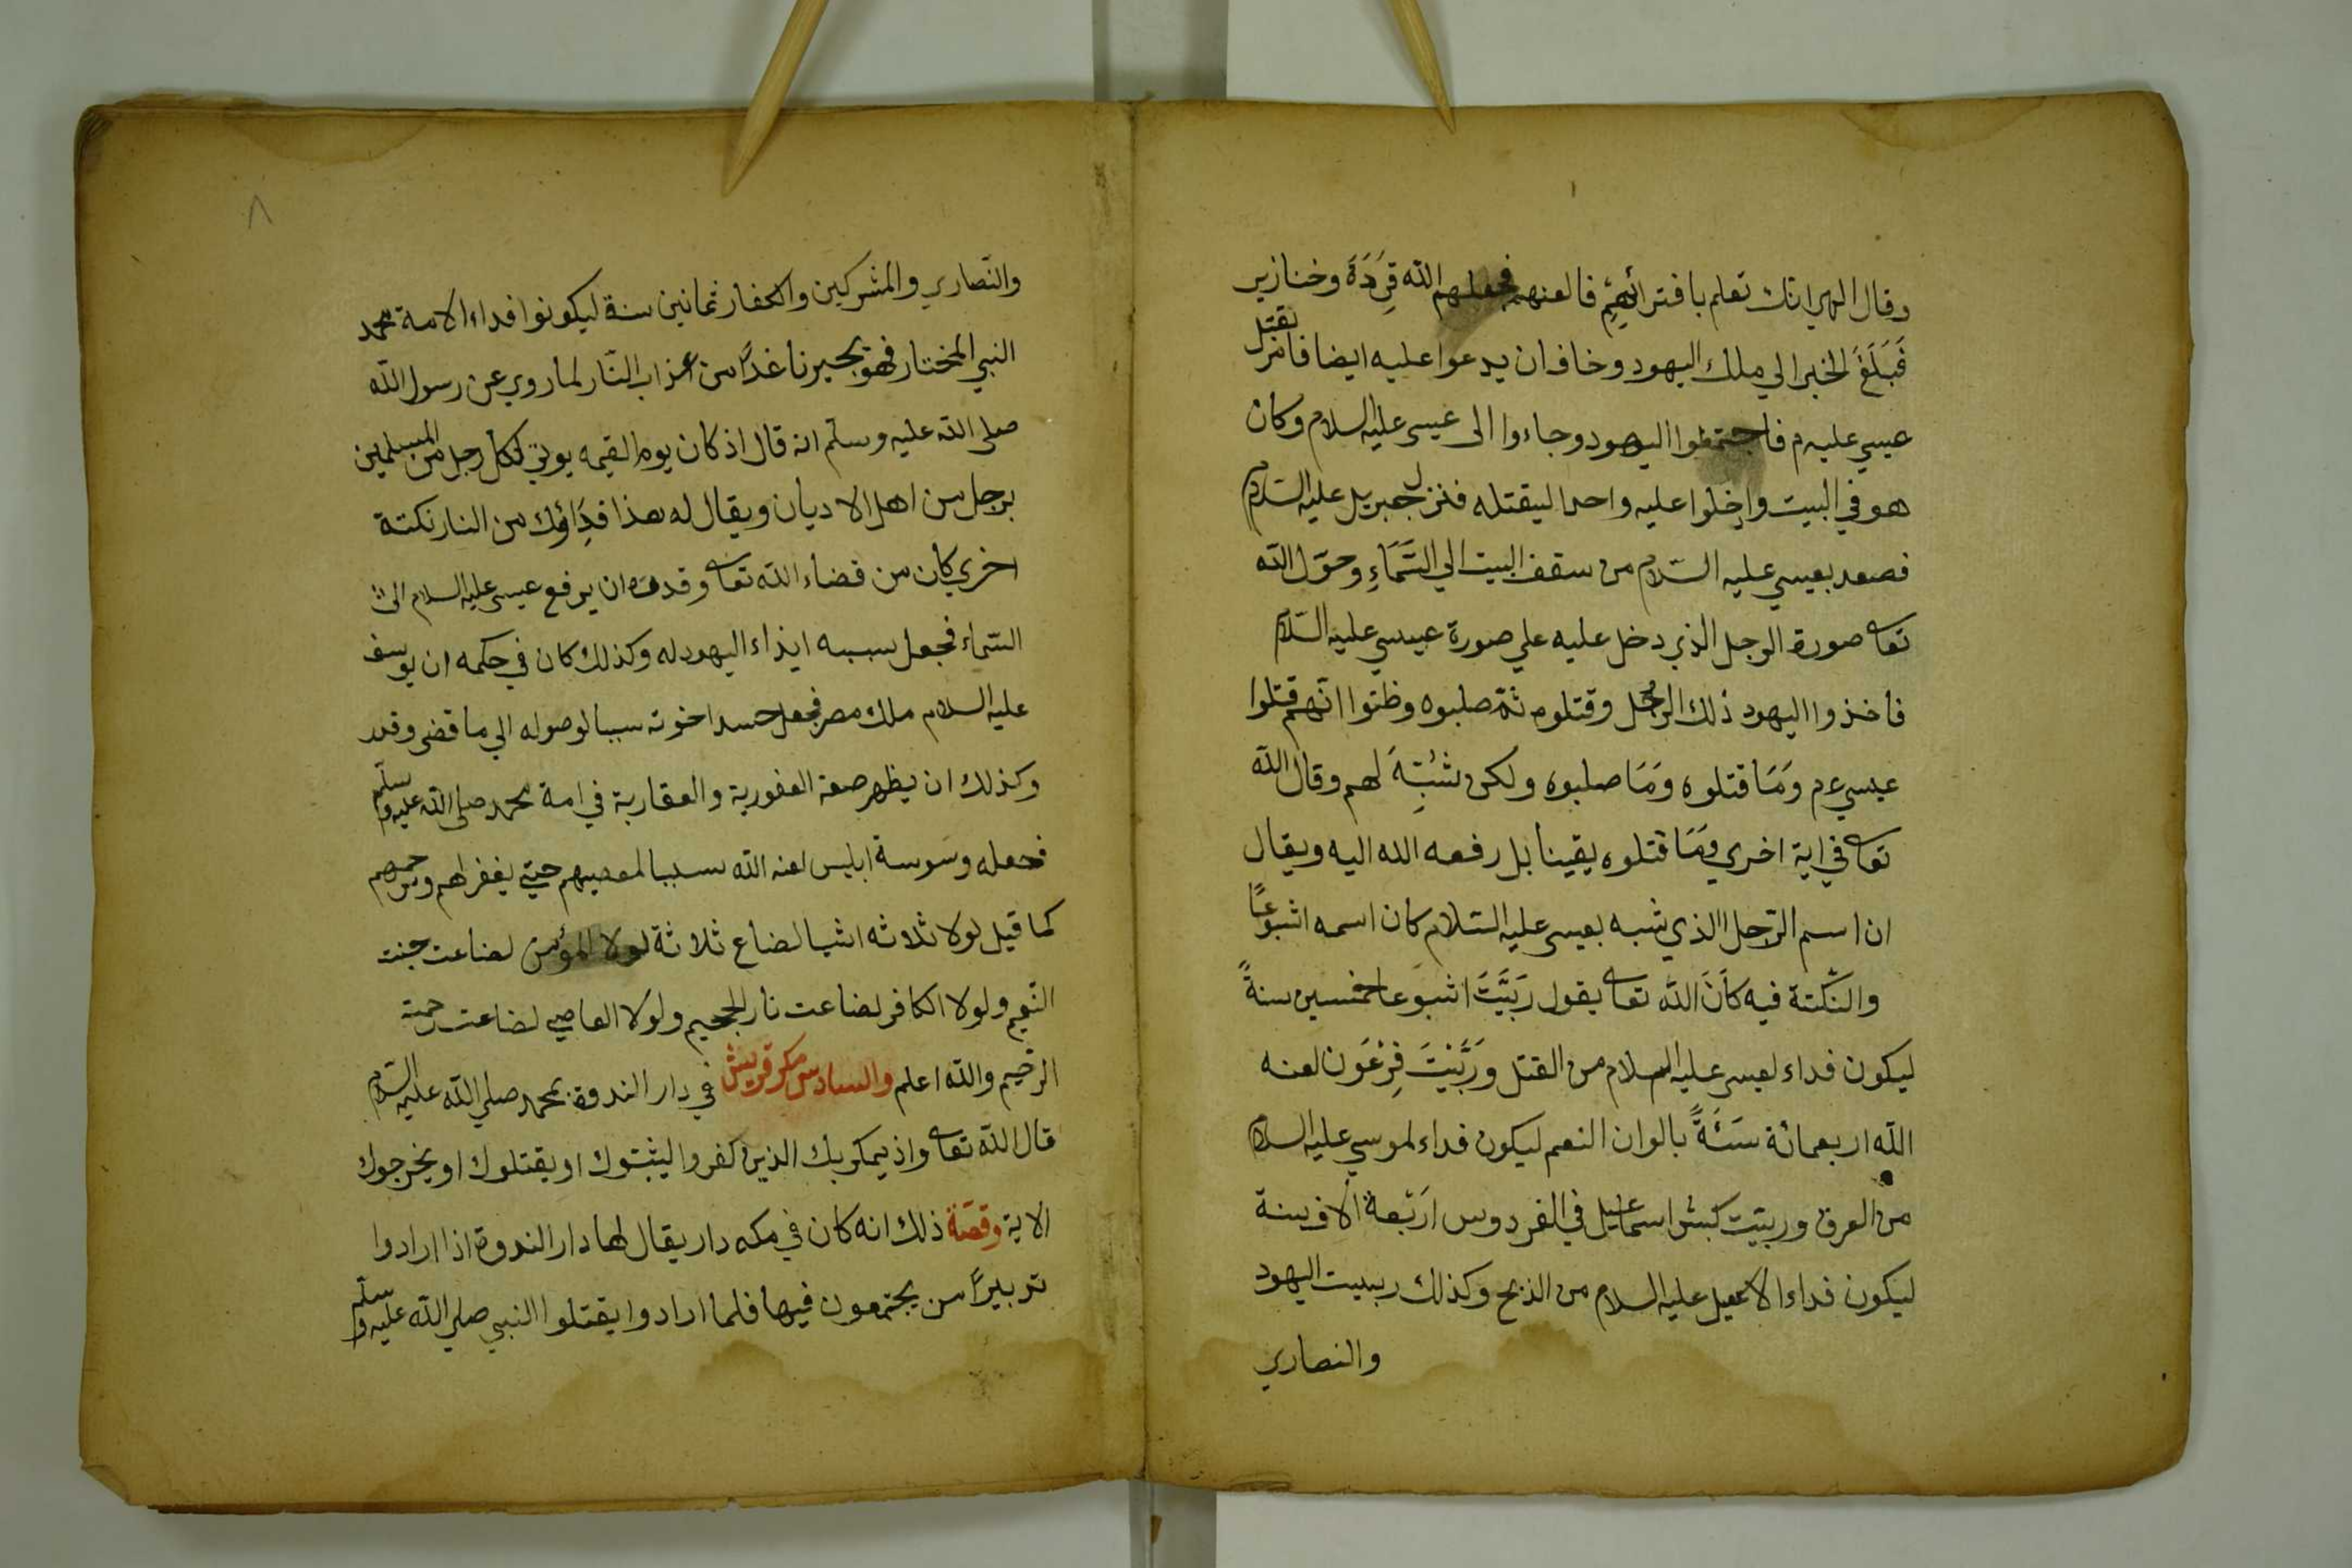 وقال الهي انك تعلم بافترائهم فالعنهم فجعلهم الله قِرَدَةً وخنازير
فَبَلَغَ الخبر الي ملك اليهود وخاف ان يدعوا عليه ايضا فامر بقتل
عيسي عليه م فاجتمعوا اليهود وجاءوا الى عيسى عليه السلام وكان
هو في البيت وادخلوا عليه واحدا ليقتله فنزل جبريل عليه السلام
فصعد بعيسي عليه السّلام من سقف البيت الي السَّمَاءِ وحوّل الله
تعا صورة الرجل الذي دخل عليه علي صورة عيسي عليه السّلام
فاخذوا اليهود ذلك الرجل وقتلوه ثمّ صلبوه وظنوا انّهم قتلوا
عيسي ع م وَمَا قتلوه وَمَا صلبوه ولكن شُبِّهَ لهم وقال الله
تعا في اية اخري وَمَا قتلوه يقينا بل رفعه الله اليه ويقال
ان اسم الرّجل الذي شبه بعيسى عليه السّلام كان اسمه اشبوعًا
والنكتة فيه كاَنَ الله تعا يقول رَبَّيَتَ اشبوعا خمسين سنةً
ليكون فداء لعيسى عليه السلام من القتل وَرَبَّيْتَ فِرْعَون لعنه
الله اربعمائة سَنَةً بالوان النعم ليكون فداء لموسي عليه السلام
من الغرق وربيّت كبش اسماعيل في الفردوس ارَبْعة الاف سنة
ليكون فداء لاسمعيل عليه السلام من الذبح وكذلك ربييت اليهود
والنصاري
٨
والنّصاري والمشركين والكفار ثمانين سنة ليكونوا فداء الامة محمد
النبي المختار فهو يجيرنا غدًا من عذاب النّار لما روي عن رسول الله
صلى الله عليه وسلّم انه قال اذ كان يوم القيمه يوتي لكل رجل من المسلمين
برجل من اهل الاديان ويقال له هذا فِدَاؤك من النار نكتة
اخري كان من قضاء الله تعا وقدره ان يرفع عيسى عليه السلام الى
السّماء فجعل سببه ايذاء اليهود له وكذلك كان في حكمه ان يوسف
عليه السلام ملك مصر فجعل حسد اخوته سببا لوصوله الي ما قضى وقدر
وكذلك ان يظهر صفة الغفورية والغفارية في امة محمد صلى الله عليه وسلّم
فجعله وسَوسة ابليس لعنه الله سببا لمعصيهم حتي يغفر لهم ويرحمهم
كما قيل لولا ثلاثه اشيا لضاع ثلاثة لولا المؤمن لضاعت جنت
النّعيم ولولا الكافر لضاعت نار الجحيم ولولا العاصي لضاعت رحمة
الرحيم والله اعلم والسادس مكر قريش في دار الندوة بمحمد صلي الله عليه السّلام
قال الله تعا واذ يمكر بك الذين كفروا ليثبتوك او يقتلوك او يخرجوك
الاية وقصّة ذلك انه كان في مكه دار يقال لها دار الندوة اذا ارادوا
تدبيرًا من يجتمعون فيها فلما ارادوا يقتلوا النبي صلي الله عليه وسلّم